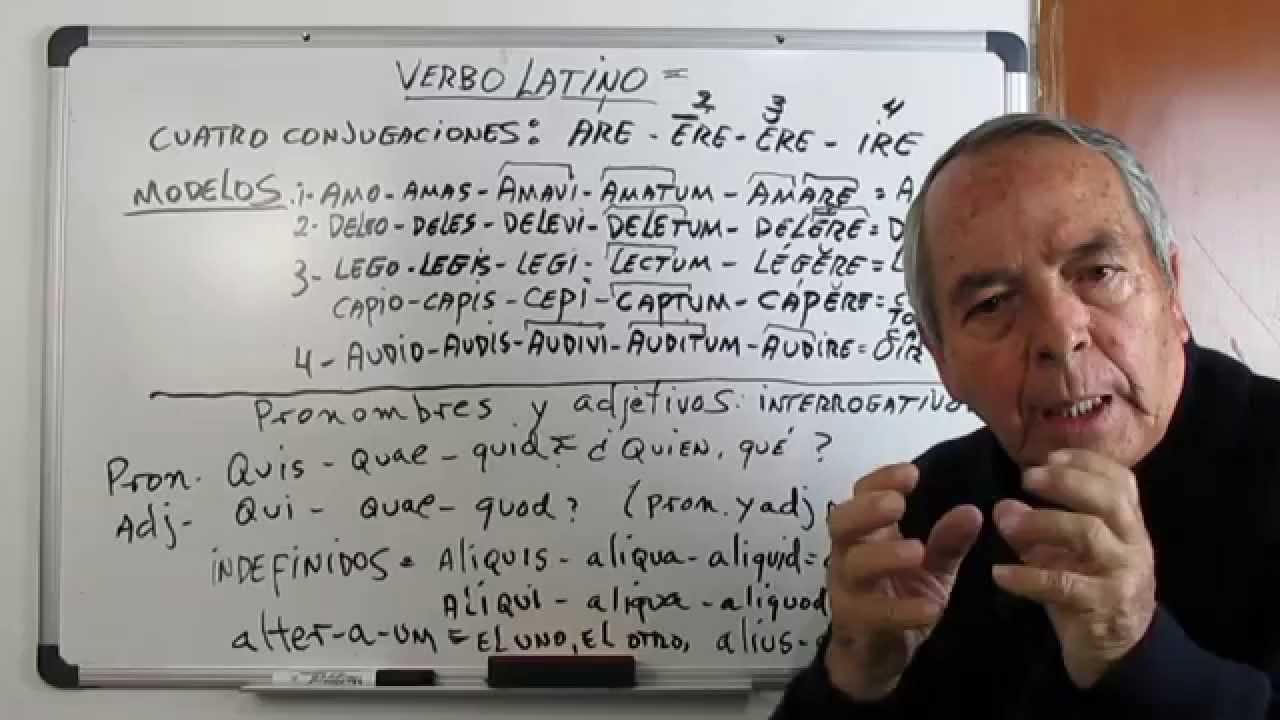 VERBO LATINO =
2 3 4
CUATRO CONJUGACIONES: ARE - ĒRE - ERE - IRE
MODELOS. 1- AMO - AMAS - AMAVI - AMATUM - AMARE = A
2- DELEO - DELES - DELEVI - DELETUM - DELERE = D
3- LEGO - LEGIS - LEGI - LECTUM - LÉGĔRE =
CAPIO - CAPIS - CEPI - CAPTUM - CÁPĔRE =
4 - AUDIO - AUDIS - AUDIVI - AUDITUM - AUDIRE = OIR
Pronombres y adjetivos: INTERROGATIVO
Pron. Quis - Quae - quid? = ¿Quien, qué?
Adj- Qui - Quae - quod? (pron. y adj
INDEFINIDOS = ALIQUIS - aliqua - aliquid =
ALÍQUI - aliqua - aliquod
alter-a-um = EL UNO, EL OTRO, alius-